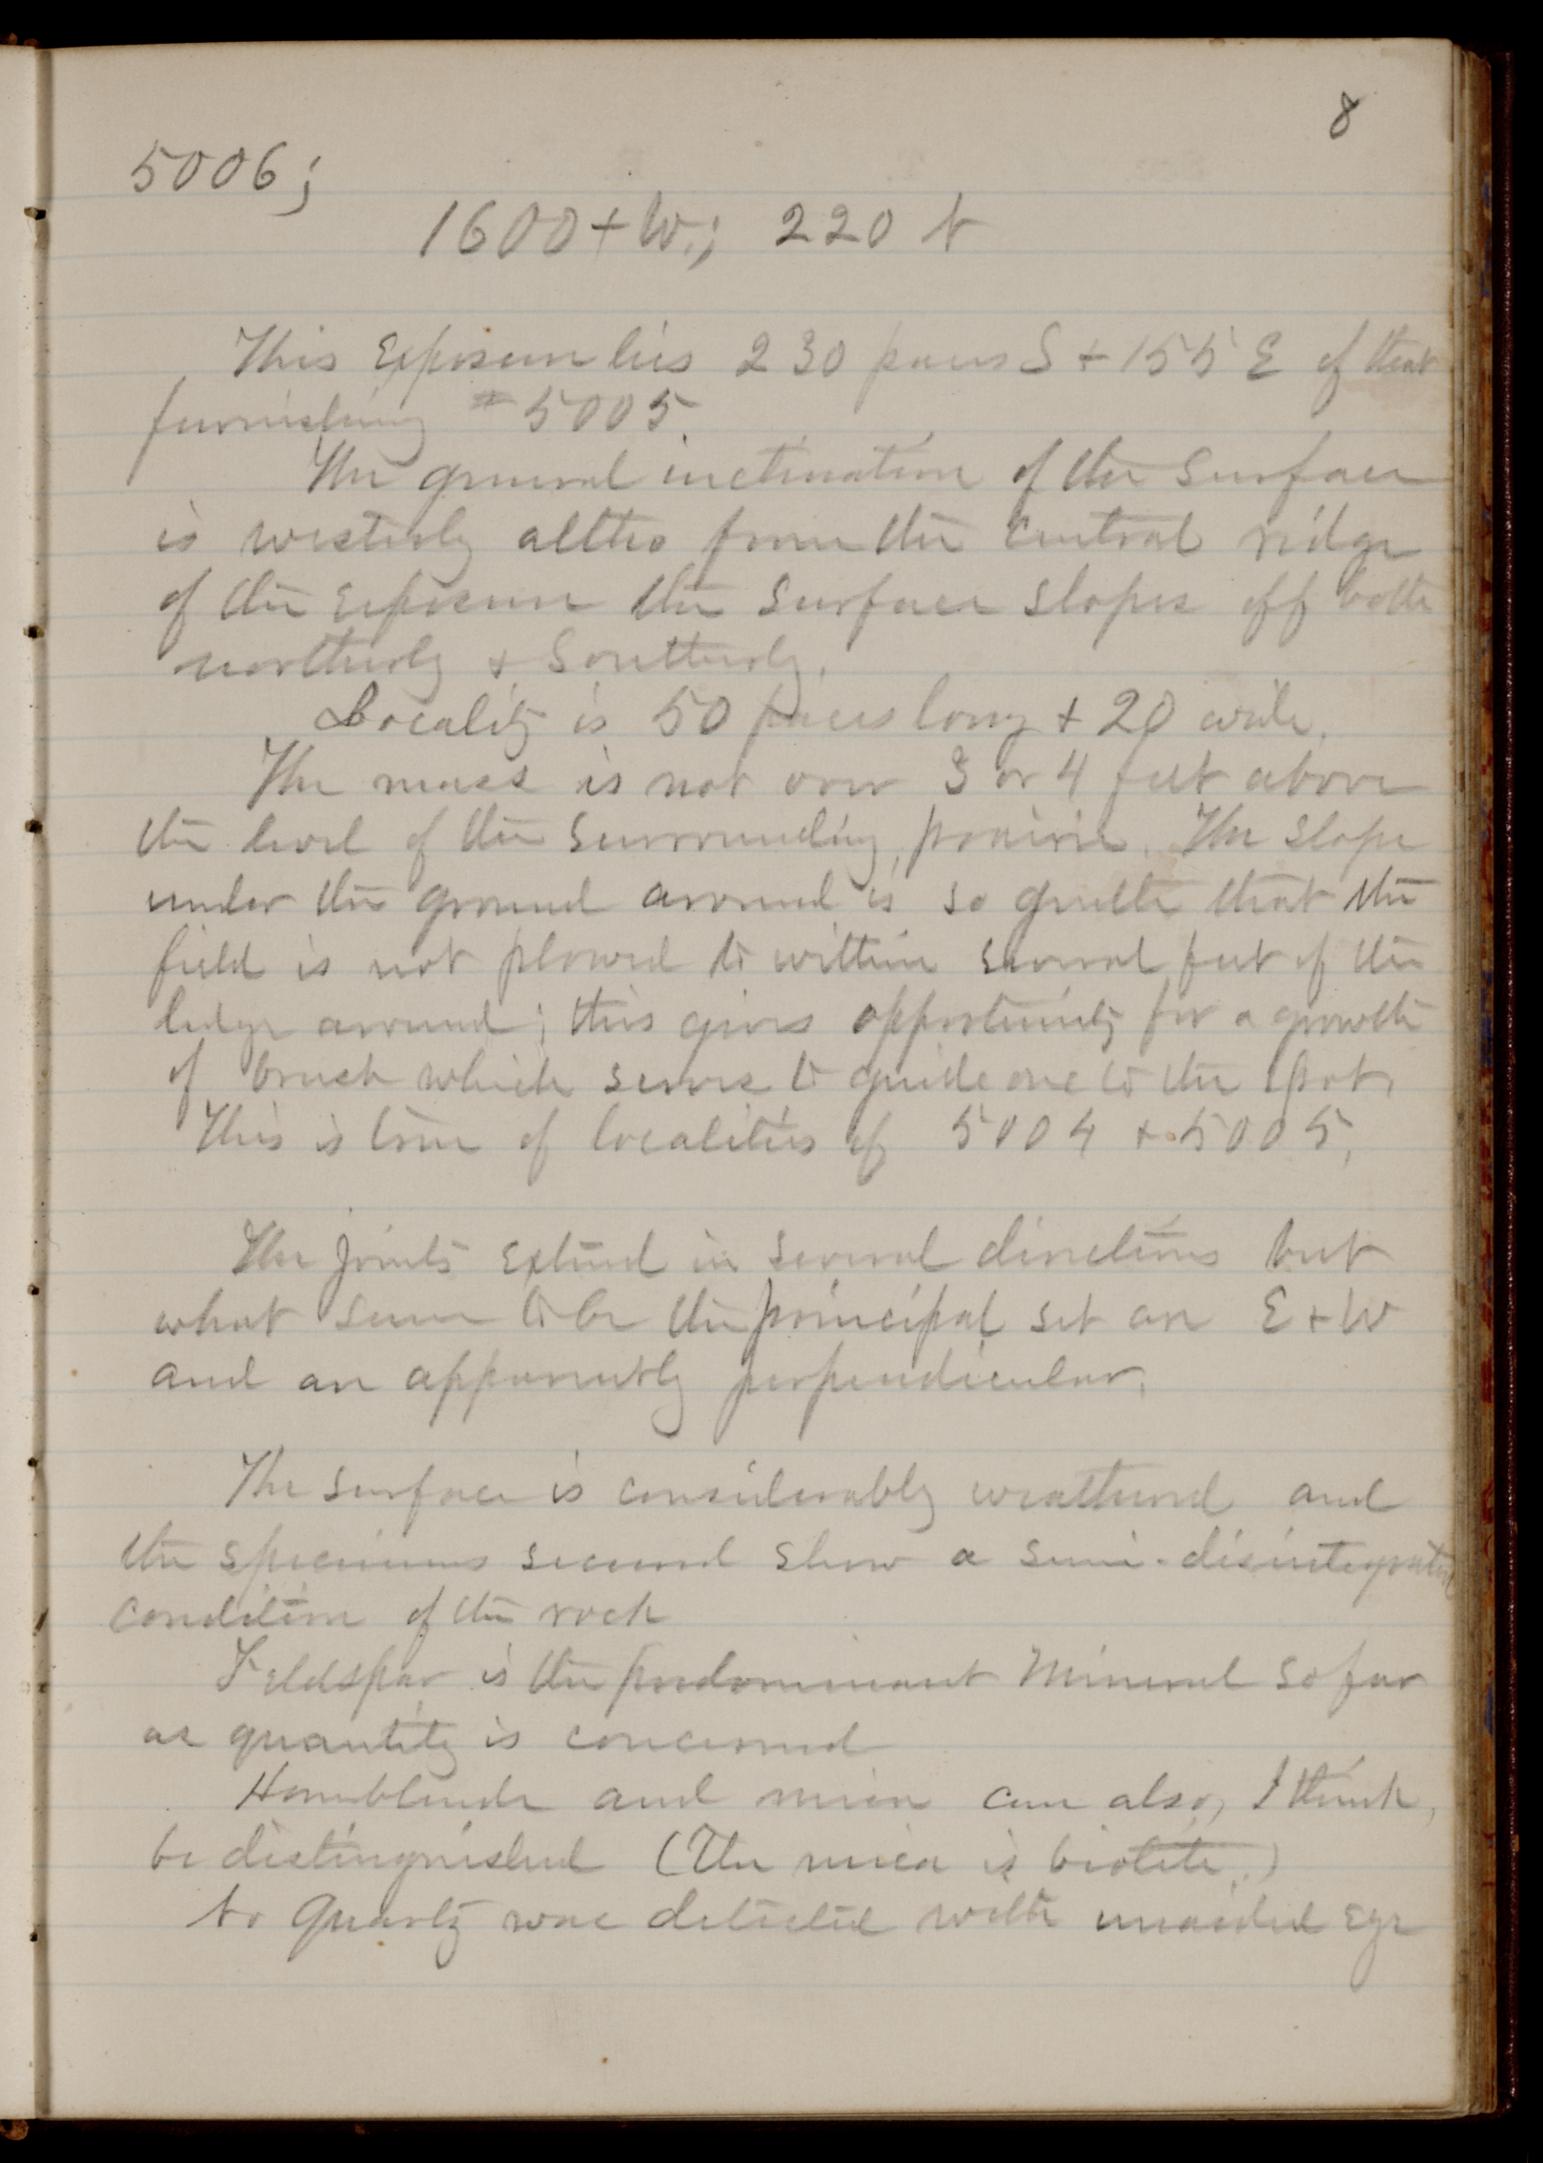 8
5006;
1600+W.; 220 N
This Exposure lies 230 paces S + 155 E of that
furnishing # 5005.
The general inclination of the Surface
is westerly altho from the central ridge
of the exposure the Surface slopes off both
northerly & Southerly.
Locality is 50 paces long + 20 wide.
The mass is not over 3 or 4 feet above
the level of the surrounding prairie. The slope
under the ground around is so gentle that the
field is not plowed to within several feet of the
ledge around; this gives opportunity for a growth
of brush which serves to guide one to the spot.
This is true of localities of 5004 + 5005.
The joints extend in several directions but
what seem to be the principal set are E + W
and are apparently perpendicular.
The surface is considerably weathered and
the specimens secured show a semi-disintegrated
condition of the rock
Feldspar is the predominant mineral so far
as quantity is concerned
Hornblende and mica can also, I think,
be distinguished (The mica is biotite.)
No Quartz was detected with unaided eye